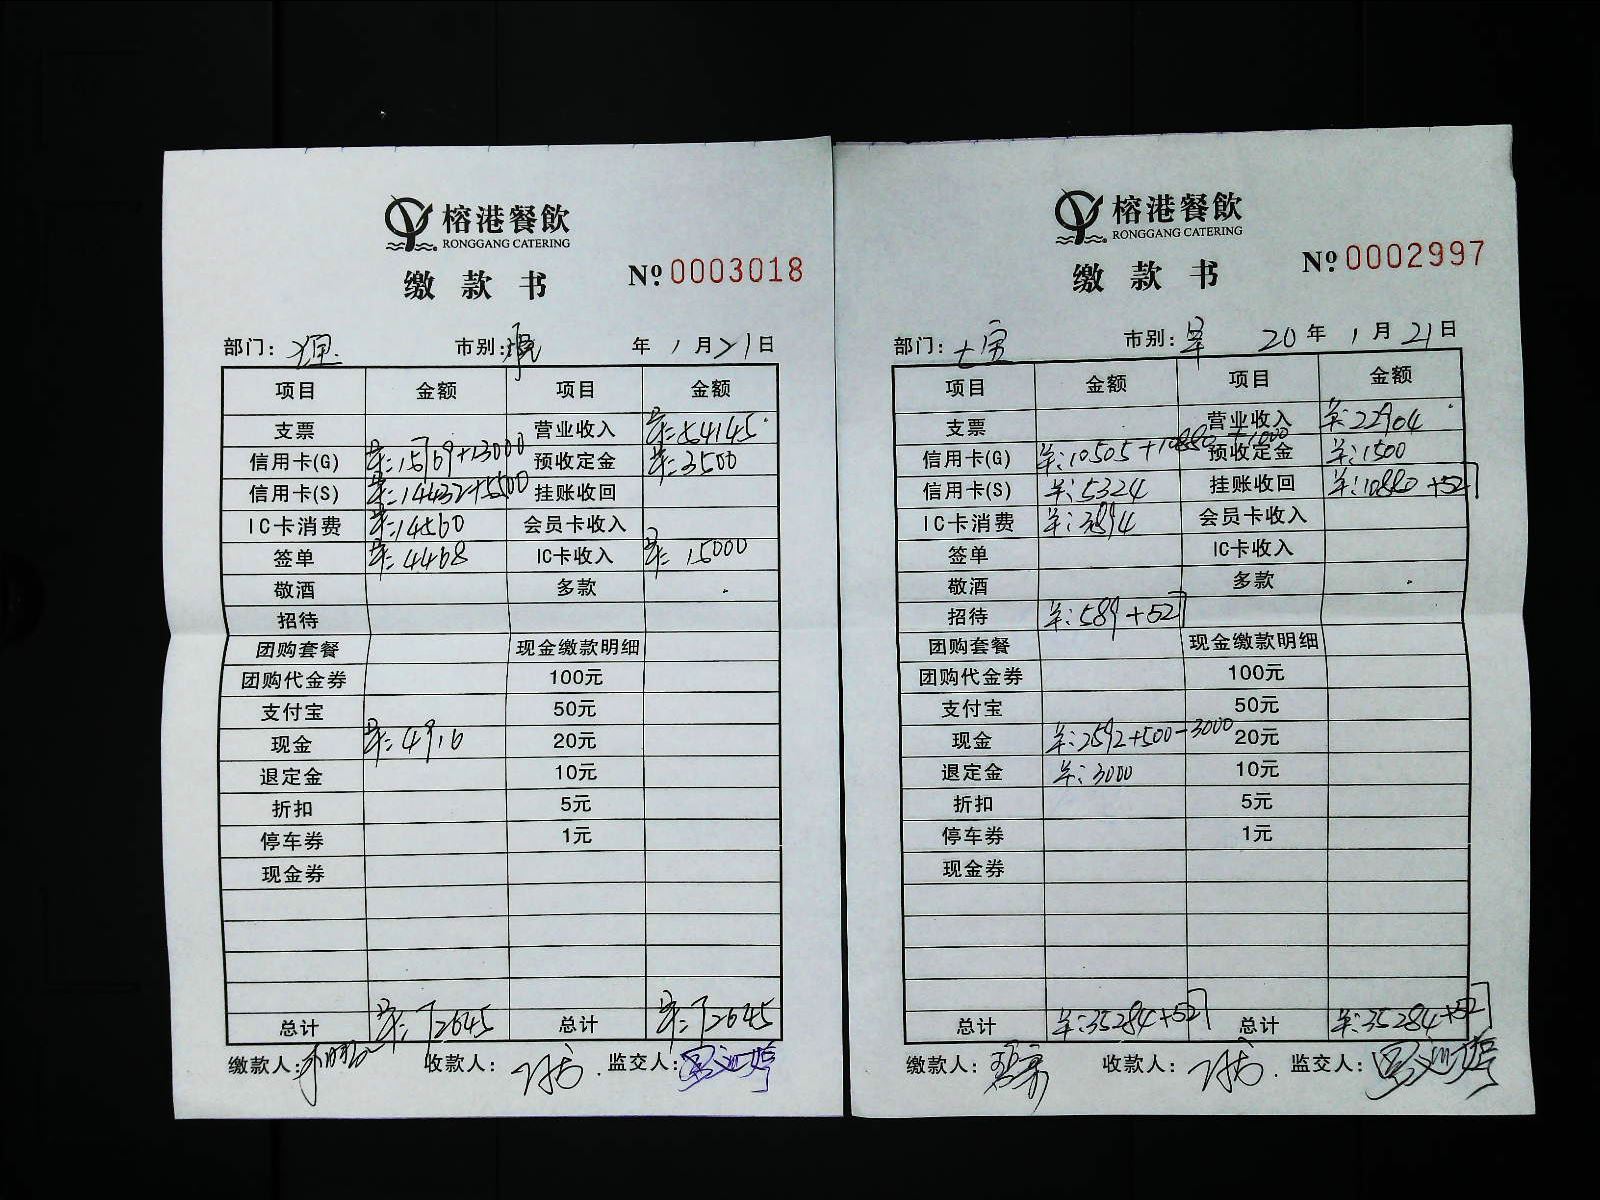 榕港餐飲
RONGGANG CATERING
缴款书 № 0003018
部门: 市别: 年 1月21日
项目 金额 项目 金额
支票 营业收入 ¥:54145
信用卡(G) ¥:15769+13000 预收定金 ¥:3500
信用卡(S) ¥:14432+5500 挂账收回
IC卡消费 ¥:14560 会员卡收入
签单 ¥:4468 IC卡收入 ¥:15000
敬酒 多款
招待
团购套餐 现金缴款明细
团购代金券 100元
支付宝 50元
现金 ¥:4916 20元
退定金 10元
折扣 5元
停车券 1元
现金券
总计 ¥:72645 总计 ¥:72645
缴款人: 收款人: 监交人:
榕港餐飲
RONGGANG CATERING
缴款书 № 0002997
部门: 市别: 20年 1月21日
项目 金额 项目 金额
支票 营业收入 ¥:22904
信用卡(G) ¥:10505+10880+1000 预收定金 ¥:1500
信用卡(S) ¥:5324 挂账收回 ¥:10880+527
IC卡消费 ¥:3894 会员卡收入
签单 IC卡收入
敬酒 多款
招待 ¥:589+527
团购套餐 现金缴款明细
团购代金券 100元
支付宝 50元
现金 ¥:2592+500-3000 20元
退定金 ¥:3000 10元
折扣 5元
停车券 1元
现金券
总计 ¥:35284+527 总计 ¥:35284+527
缴款人: 收款人: 监交人: